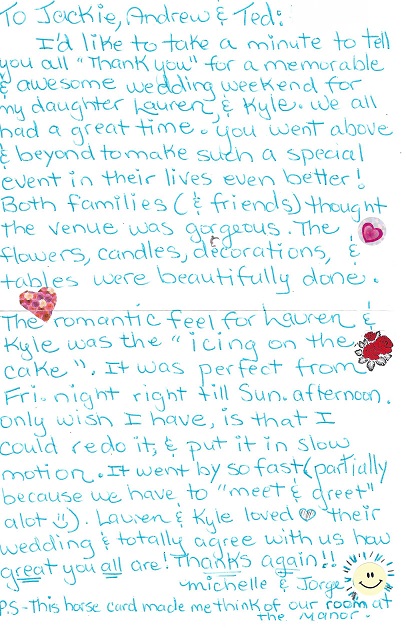 To Jackie, Andrew & Ted:
I'd like to take a minute to tell
you all "Thank you" for a memorable
& awesome wedding weekend for
my daughter Lauren & Kyle. We all
had a great time. You went above
& beyond to make such a special
event in their lives even better!
Both families (& friends) thought
the venue was gorgeous. The
flowers, candles, decorations, &
tables were beautifully done.
The romantic feel for Lauren &
Kyle was the "icing on the
cake". It was perfect from
Fri. night right till Sun. afternoon.
only wish I have, is that I
could redo it, & put it in slow
motion. It went by so fast (partially
because we have to "meet & greet"
alot). Lauren & Kyle loved their
wedding & totally agree with us how
great you all are! Thanks again!!
michelle & Jorge
P.S - This horse card made me think of our room at
the Manor.